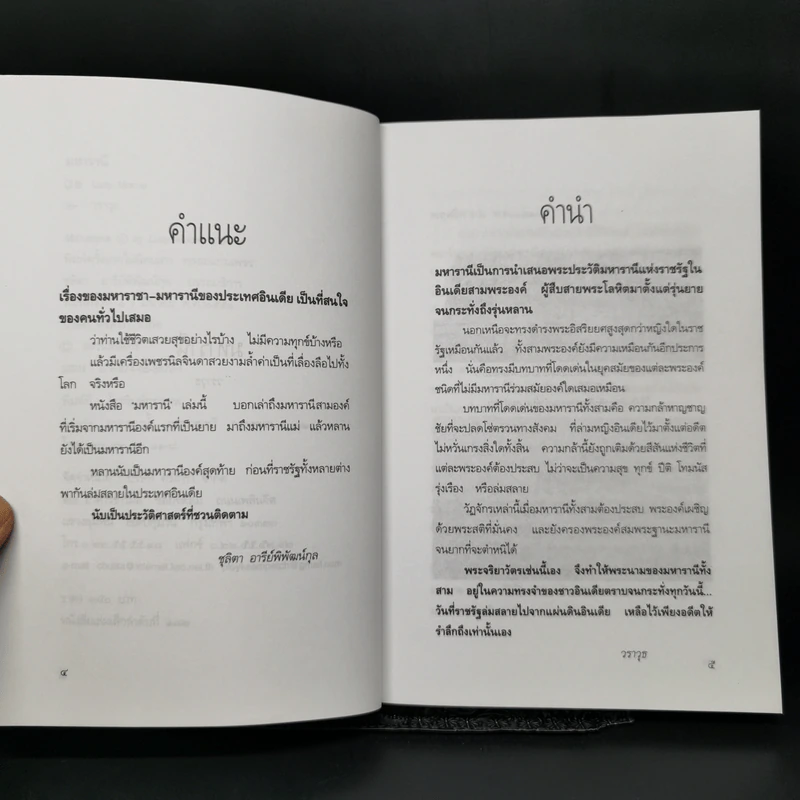 คำแนะ
เรื่องของมหาราชา–มหารานีของประเทศอินเดีย เป็นที่สนใจ
ของคนทั่วไปเสมอ
ว่าท่านใช้ชีวิตเสวยสุขอย่างไรบ้าง ไม่มีความทุกข์บ้างหรือ
แล้วมีเครื่องเพชรนิลจินดาสวยงามล้ำค่าเป็นที่เลื่องลือไปทั้ง
โลก จริงหรือ
หนังสือ 'มหารานี' เล่มนี้ บอกเล่าถึงมหารานีสามองค์
ที่เริ่มจากมหารานีองค์แรกที่เป็นยาย มาถึงมหารานีแม่ แล้วหลาน
ยังได้เป็นมหารานีอีก
หลานนับเป็นมหารานีองค์สุดท้าย ก่อนที่ราชรัฐทั้งหลายต่าง
พากันล่มสลายในประเทศอินเดีย
นับเป็นประวัติศาสตร์ที่ชวนติดตาม
ชุลิตา อารีย์พิพัฒน์กุล
๔
คำนำ
มหารานีเป็นการนำเสนอพระประวัติมหารานีแห่งราชรัฐใน
อินเดียสามพระองค์ ผู้สืบสายพระโลหิตมาตั้งแต่รุ่นยาย
จนกระทั่งถึงรุ่นหลาน
นอกเหนือจะทรงดำรงพระอิสริยยศสูงสุดกว่าหญิงใดในราช
รัฐเหมือนกันแล้ว ทั้งสามพระองค์ยังมีความเหมือนกันอีกประการ
หนึ่ง นั่นคือทรงมีบทบาทที่โดดเด่นในยุคสมัยของแต่ละพระองค์
ชนิดที่ไม่มีมหารานีร่วมสมัยองค์ใดเสมอเหมือน
บทบาทที่โดดเด่นของมหารานีทั้งสามคือ ความกล้าหาญชาญ
ชัยที่จะปลดโซ่ตรวนทางสังคม ที่ล่ามหญิงอินเดียไว้มาตั้งแต่อดีต
ไม่หวั่นเกรงสิ่งใดทั้งสิ้น ความกล้านี้ยังถูกเติมด้วยสีสันแห่งชีวิตที่
แต่ละพระองค์ต้องประสบ ไม่ว่าจะเป็นความสุข ทุกข์ ปีติ โทมนัส
รุ่งเรือง หรือล่มสลาย
วัฏจักรเหล่านี้เมื่อมหารานีทั้งสามต้องประสบ พระองค์เผชิญ
ด้วยพระสติที่มั่นคง และยังครองพระองค์สมพระฐานะมหารานี
จนยากที่จะตำหนิได้
พระจริยาวัตรเช่นนี้เอง จึงทำให้พระนามของมหารานีทั้ง
สาม อยู่ในความทรงจำของชาวอินเดียตราบจนกระทั่งทุกวันนี้...
วันที่ราชรัฐล่มสลายไปจากแผ่นดินอินเดีย เหลือไว้เพียงอดีตให้
รำลึกถึงเท่านั้นเอง
วราวุธ
๕